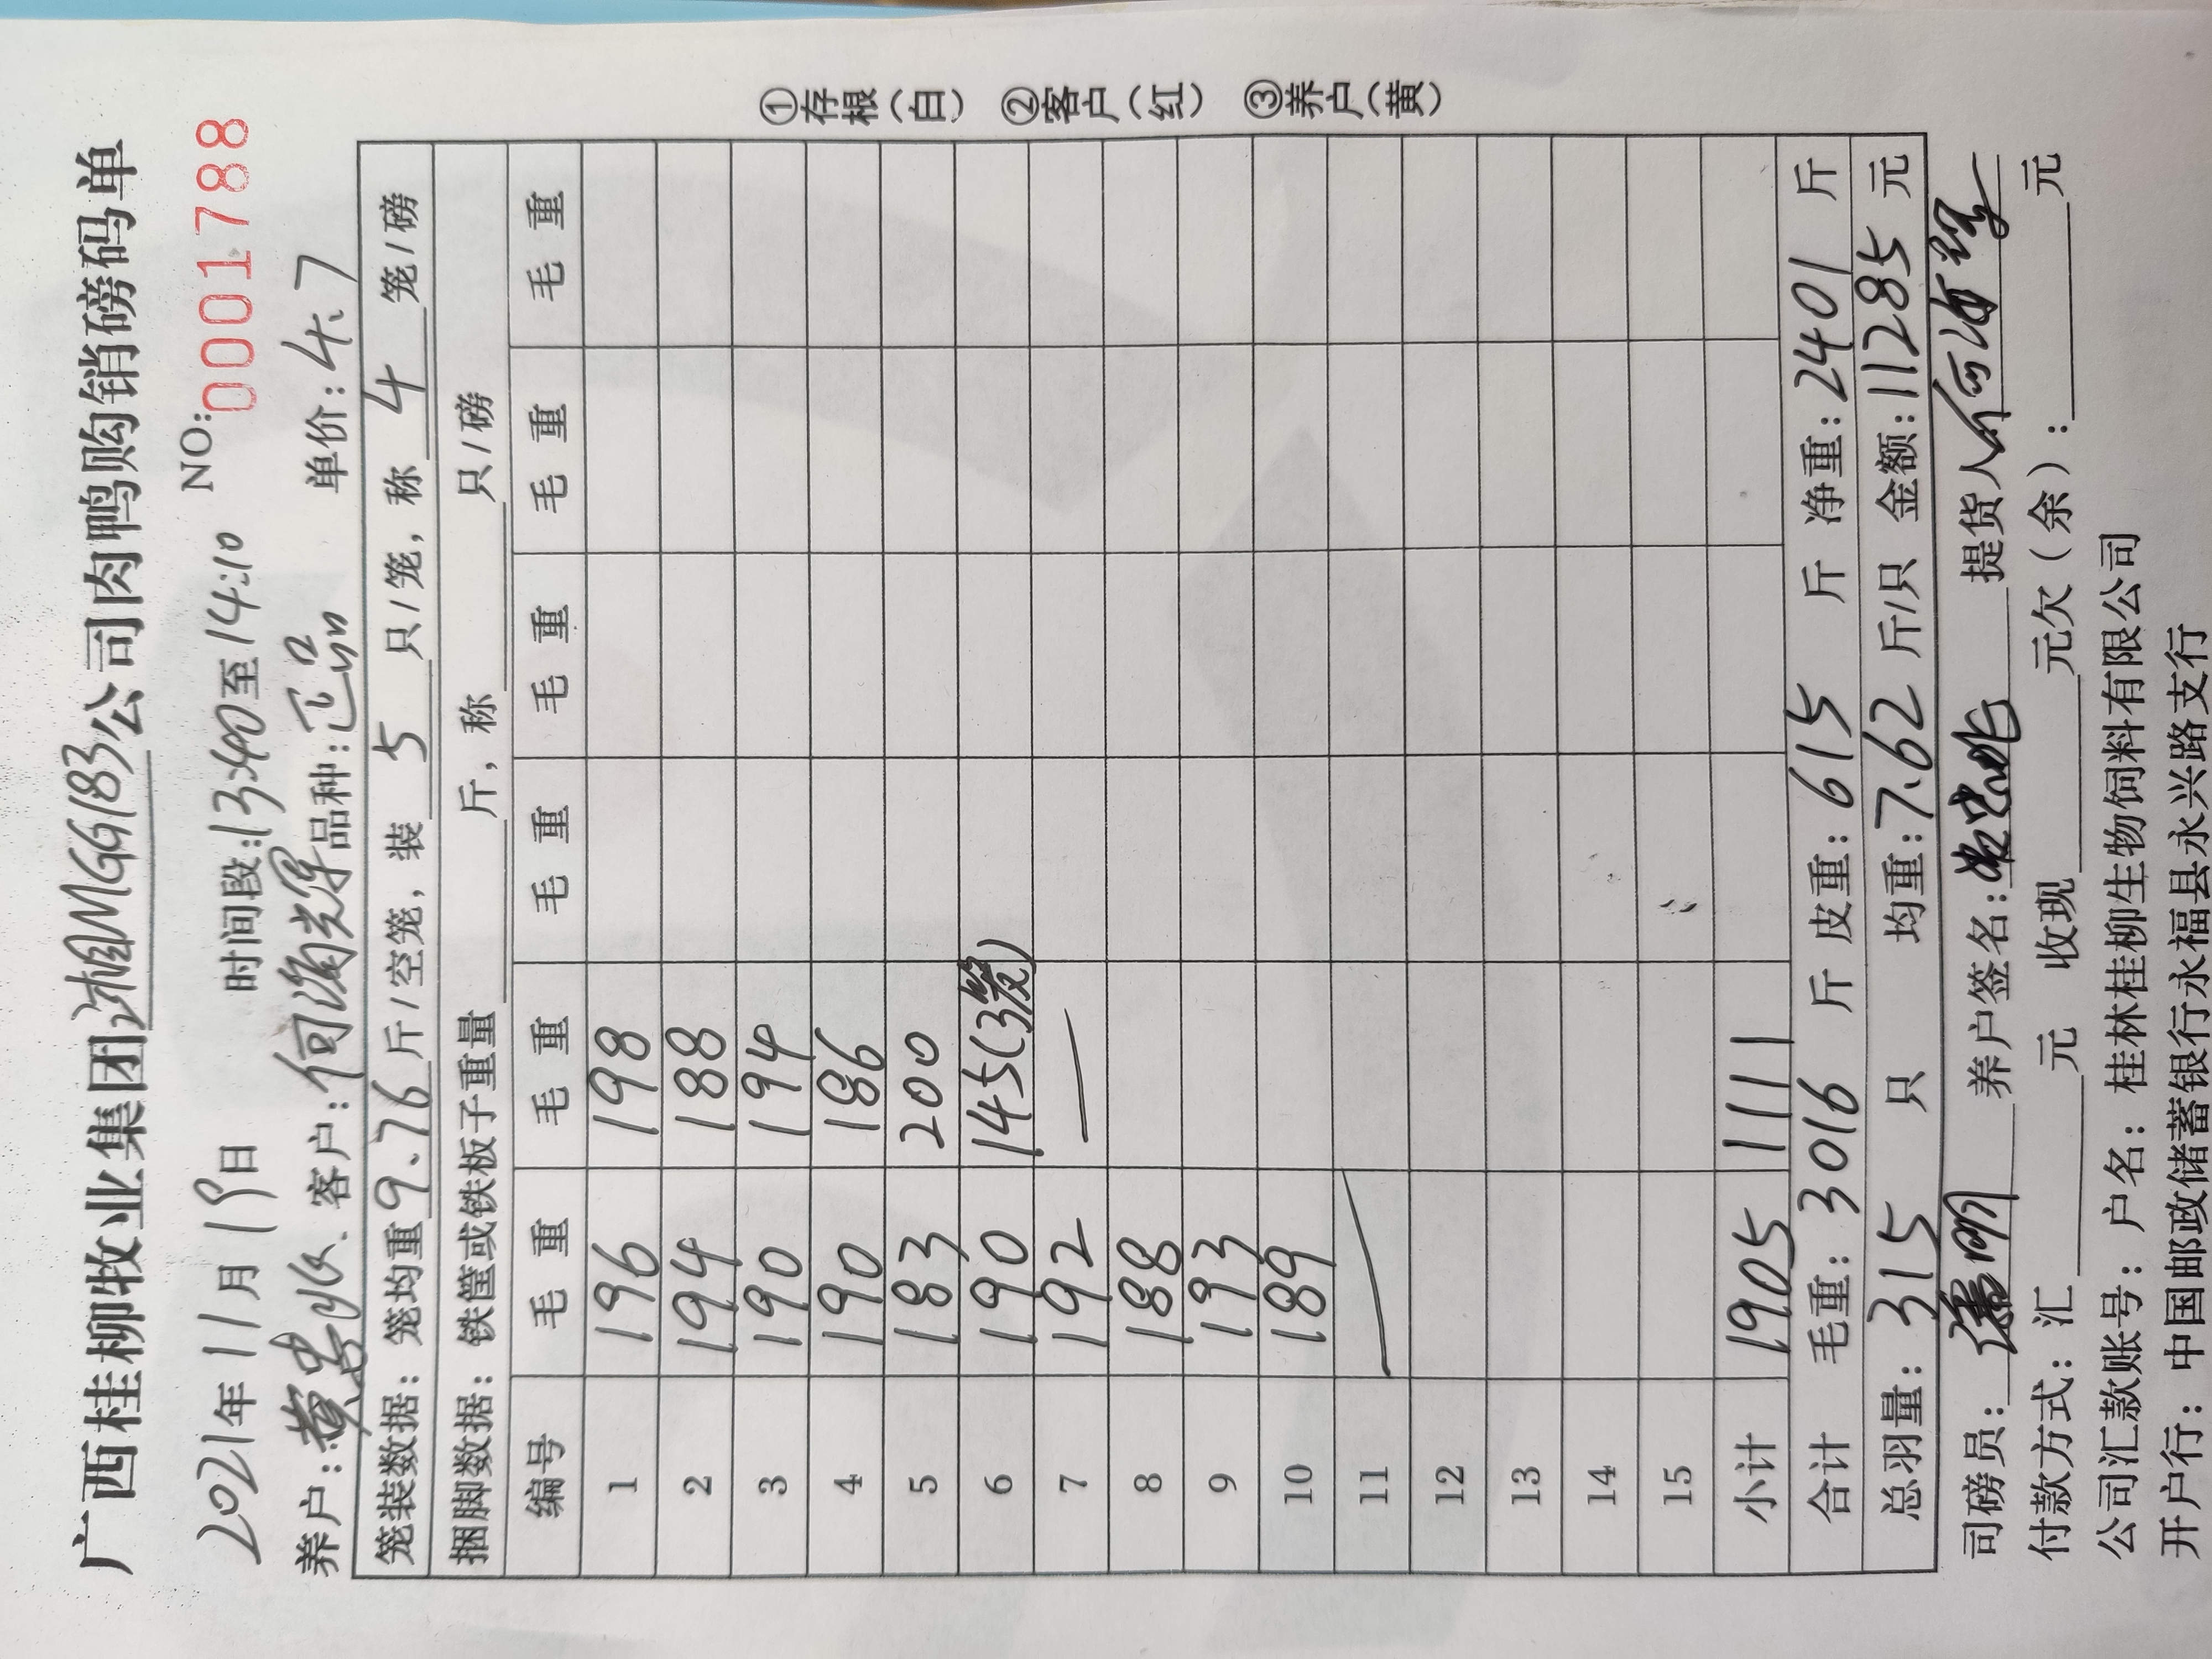 广西桂柳牧业集团湘MGG183公司肉鸭购销磅码单
2021年11月19日 时间段:13:40至14:10 NO:0001788
养户:黄忠 客户:何海 品种:正品 单价:4.7
笼装数据:笼均重9.76斤/空笼,装5只/笼,称4笼/磅
捆脚数据:铁筐或铁板子重量 斤,称 只/磅
编号 毛重 毛重 毛重 毛重 毛重 毛重
1 196 198
2 194 188
3 190 194
4 190 186
5 183 200
6 190 145(3笼)
7 192 —
8 188
9 193
10 189
11 —
12
13
14
15
小计 1905 1111
合计 毛重:3016斤 皮重:615斤 净重:2401斤
总羽量:315只 均重:7.62斤/只 金额:11285元
司磅员: 养户签名: 提货人 何海
付款方式:汇 元 收现 元欠(余): 元
公司汇款账号:户名:桂林桂柳生物饲料有限公司
开户行:中国邮政储蓄银行永福县永兴路支行
①存根(白) ②客户(红) ③养户(黄)